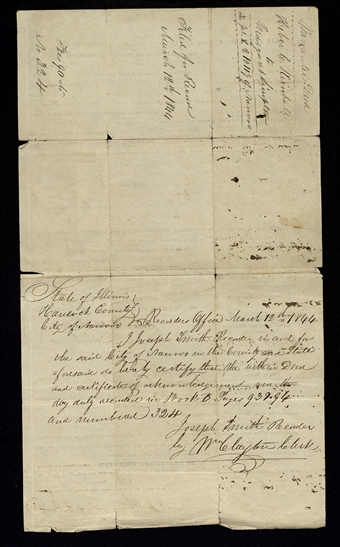 Warrantee Deed
Heber C. Kimball
to
Filed for Record
March 12th 1844
Fees 90 cts
No 324
State of Illinois
Hancock County
City of Nauvoo
Recorders Office March 12th 1844
I Joseph Smith Recorder in and for
the said City of Nauvoo in the County and State
aforesaid do hereby certify that the within Deed
and certificate of acknowledgement was this
day duly recorded in Book B Pages 93 & 94
and numbered 324
Joseph Smith Recorder
by Wm Clayton Clerk